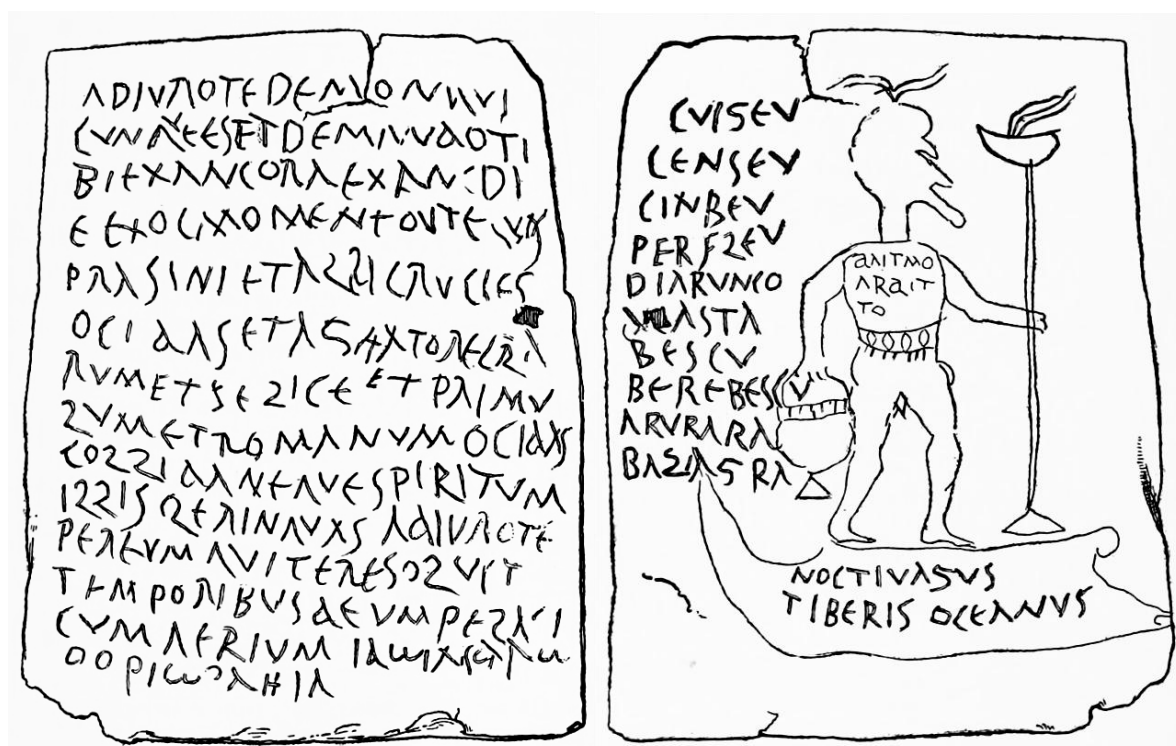 ADIVROTEDEMONQVI
CVNQVEESETDEMANDOTI
BIEXANCORAEXANCDI
EEXOCMOMENTOVTEQVOS
PRASINIETALBICRVCIES
OCIDASETAGITATORECLA
RVMETFELICEETPRIMV
LVMETROMANVMOCIDAS
COLLIDANEQVESPIRITVM
ILLISLERINQVAS ADIVROTE
PEREVMQVITERESOLVIT
TEMPORIBVSDEVMPELAGI
CVMAERIVM ΙΑω
OORIω AHIA
CVIGEV
CENSEV
CINBEV
PERFLEV
DIARVNCO
ASTA
BESCV
BEREBESCV
ARVRARA
BAZAGRA
ANTMO
ARAIT
TO
NOCTIVAGVS
TIBERIS OCEANVS